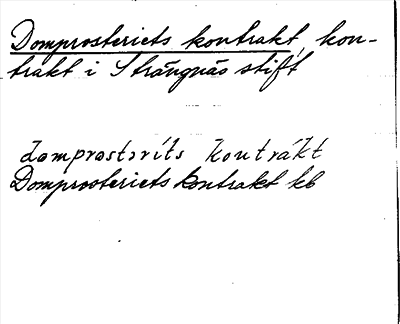 Domprosteriets kontrakt, kon-
trakt i Strängnäs stift
domprostərits kontrakt
Domprosteriets kontrakt kb